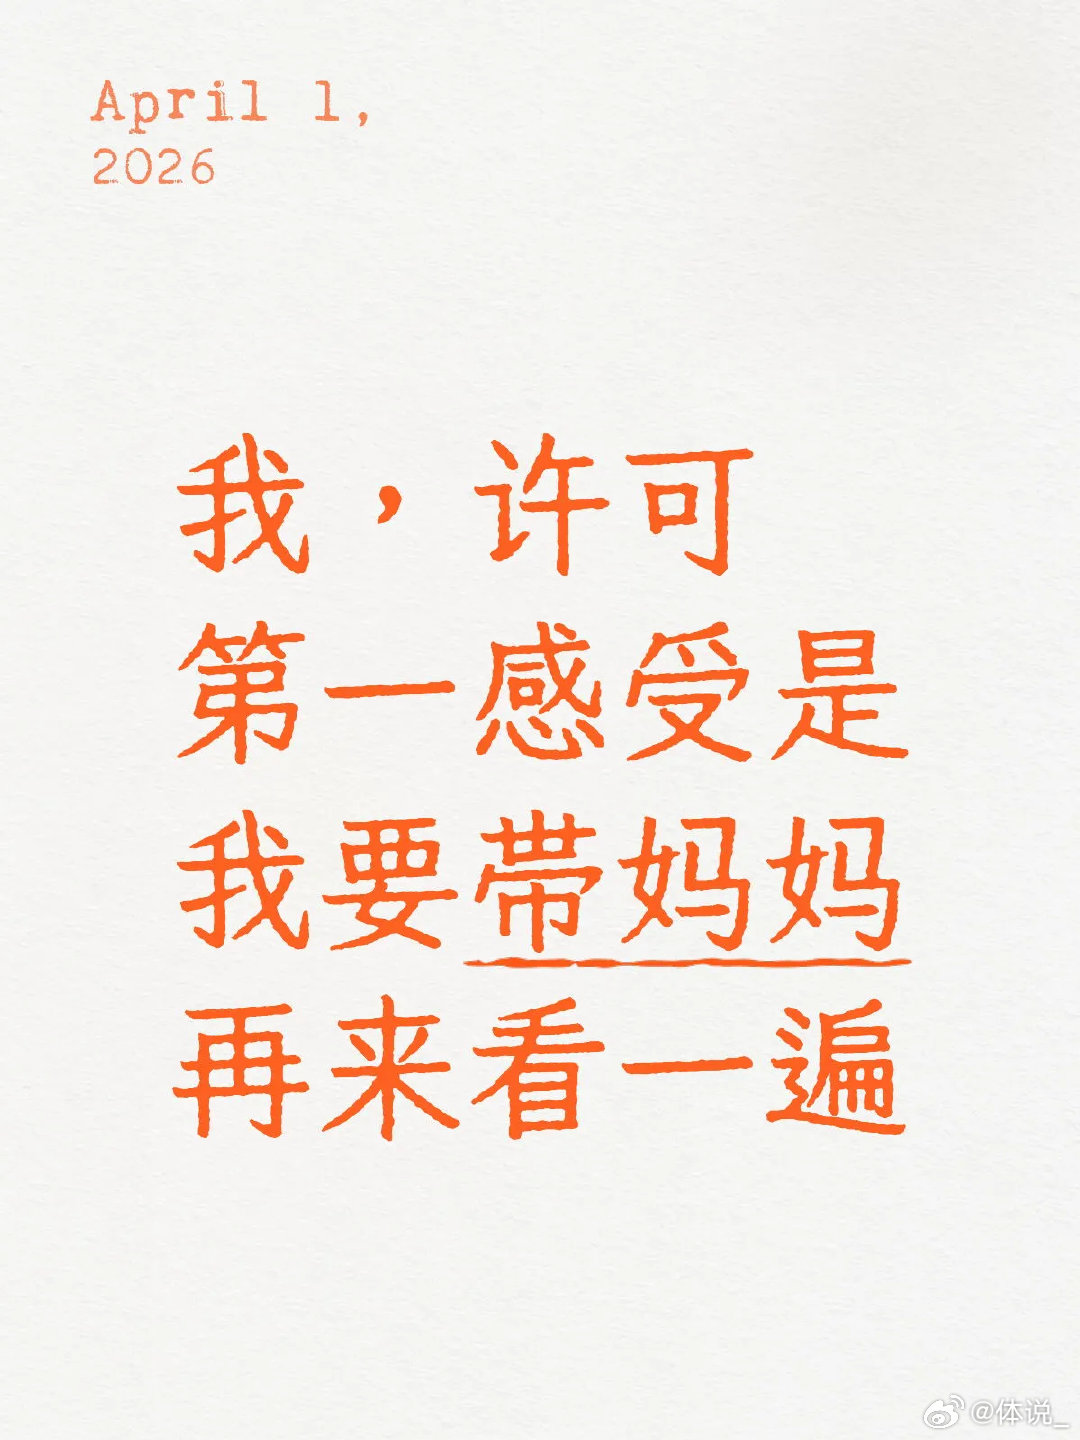 April 1,
2026
我，许可
第一感受是
我要带妈妈
再来看一遍
@体说_